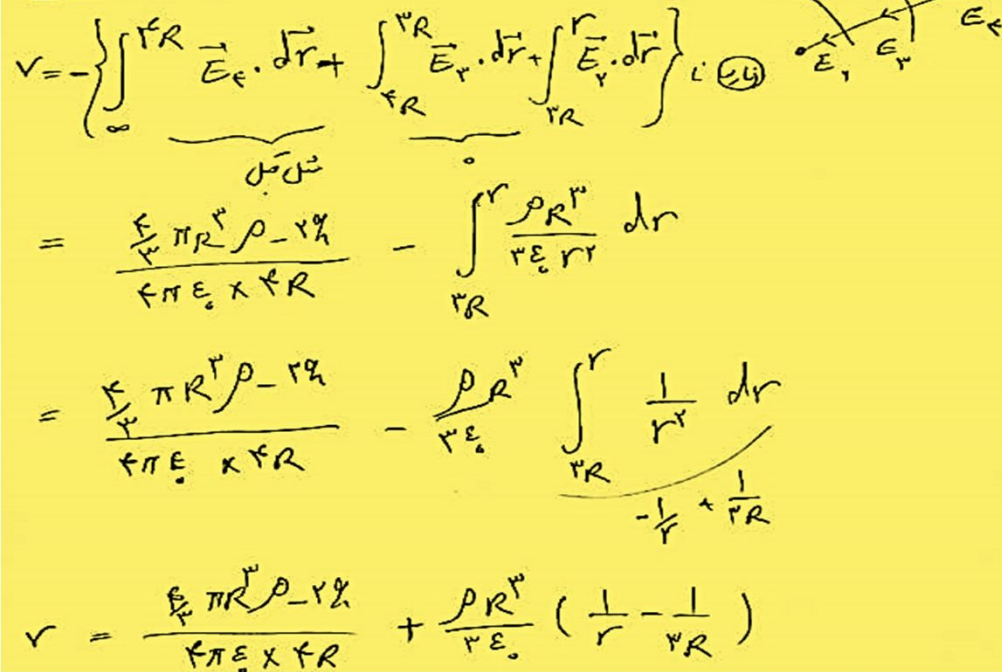 V = -{∫_∞^{۴R} E⃗_۴ . dr⃗ + ∫_{۴R}^{۳R} E⃗_۳ . dr⃗ + ∫_{۳R}^{r} E⃗_۲ . dr⃗} ; E_۲ E_۳ E_۴
۰
= (۴/۳ πR^۳ ρ - ۲q_۰)/(۴πε_۰ × ۴R) - ∫_{۳R}^{r} ρR^۳/(۳ε_۰ r^۲) dr
= (۴/۳ πR^۳ ρ - ۲q_۰)/(۴πε_۰ × ۴R) - ρR^۳/(۳ε_۰) ∫_{۳R}^{r} ۱/r^۲ dr
-۱/r + ۱/۳R
V = (۴/۳ πR^۳ ρ - ۲q_۰)/(۴πε_۰ × ۴R) + ρR^۳/(۳ε_۰) (۱/r - ۱/۳R)